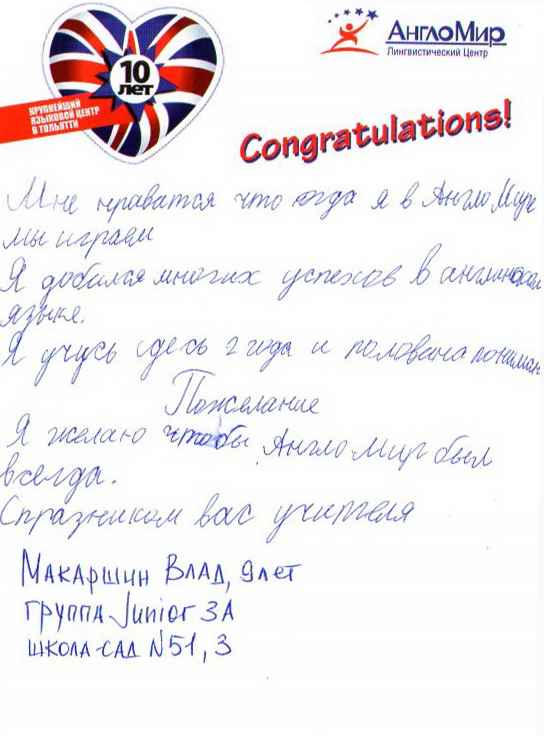 10
ЛЕТ
КРУПНЕЙШИЙ
ЯЗЫКОВОЙ ЦЕНТР
В ТОЛЬЯТТИ
АнглоМир
Лингвистический Центр
Congratulations!
Мне нраватся что когда я в Англо Мире
мы играем
Я добился многих успехов в английском
языке.
Я учусь сдесь 2 года и половена понимаю
Пожелание
Я желаю чтобы Англо Мир был
всегда.
Спразником вас учителя
Макаршин Влад, 9 лет
группа Junior 3А
школа-сад №51, 3